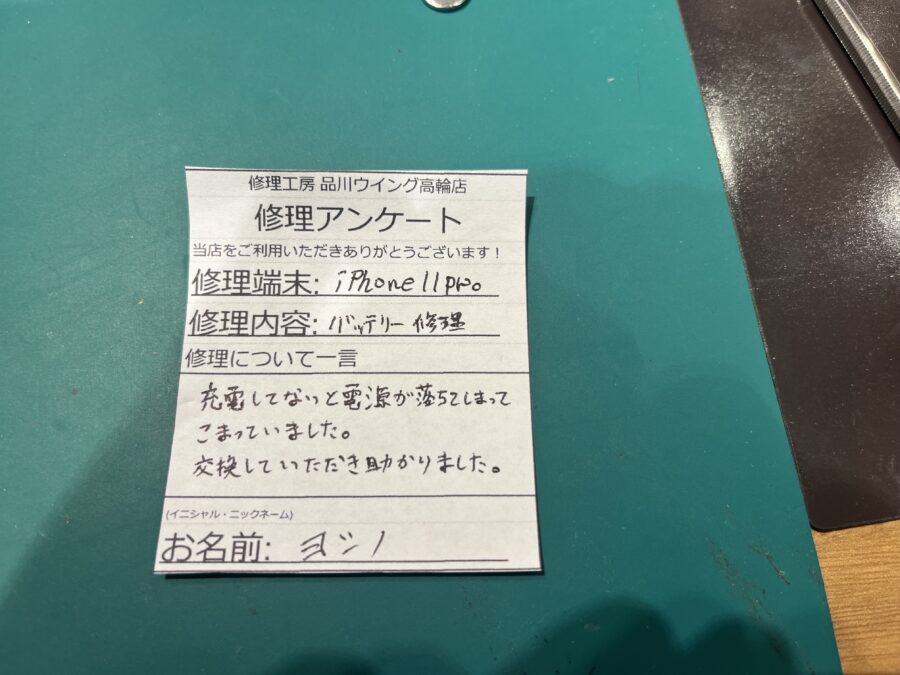 修理工房 品川ウイング高輪店
修理アンケート
当店をご利用いただきありがとうございます！
修理端末: iPhone11pro
修理内容: バッテリー修理
修理について一言
充電してないと電源が落ちてしまって
こまっていました。
交換していただき助かりました。
(イニシャル・ニックネーム)
お名前: ヨシノ